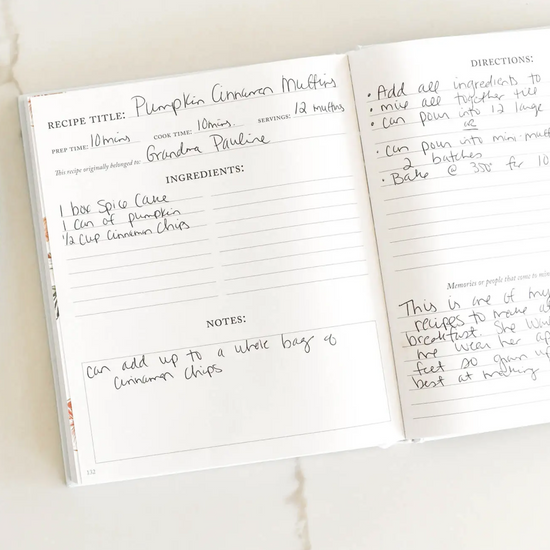 RECIPE TITLE: Pumpkin Cinnamon Muffins
PREP TIME: 10mins COOK TIME: 10mins. SERVINGS: 12 muffins
This recipe originally belonged to: Grandma Pauline
INGREDIENTS:
1 box Spice Cake
1 can of pumpkin
1/2 cup Cinnamon Chips
NOTES:
can add up to a whole bag of
cinnamon chips
132
DIRECTIONS:
• Add all ingredients to
• mix all together till
• can pour into 12 large
or
• can pour into mini muff
2 batches
• Bake @ 350° for 10
Memories or people that come to min
This is one of my
recipes to make a
breakfast. She wou
me wear her ap
feel so grown up
best at making